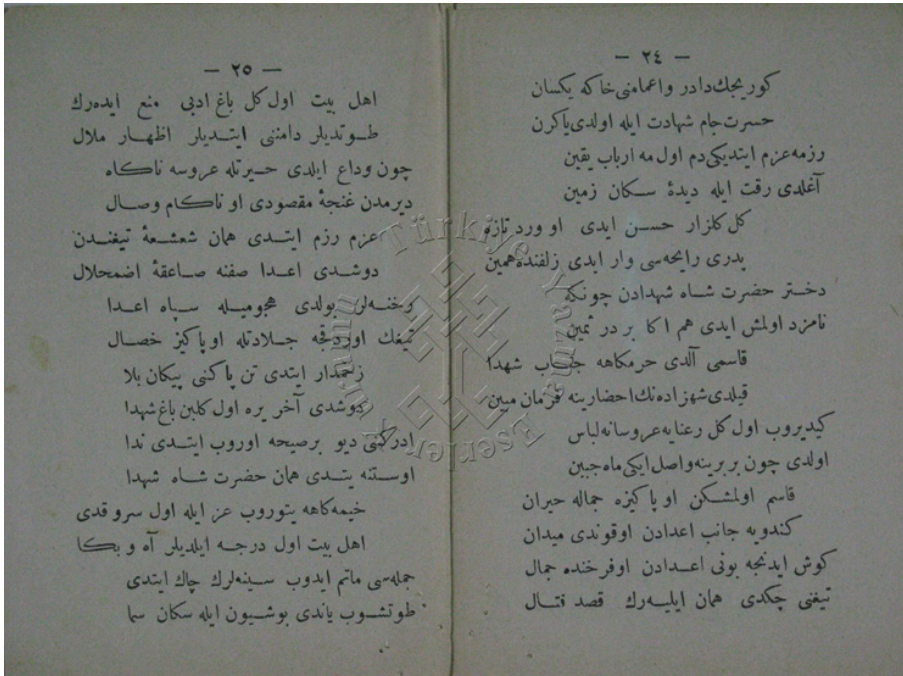 — ٢٤ —
كوريجك دادر واعمامنى خاكه يكسان
حسرت جام شهادت ايله اولدى پاكرن
رزمه عزم ايتديكى دم اول مه ارباب يقين
آغلدى رقت ايله ديدۀ سكان زمين
كل كلزار حسن ايدى او ورد تازه
بدرى رايحه‌سى وار ايدى زلفنده همين
دختر حضرت شاه شهدادن چونكه
نامزد اولمش ايدى هم اكا بر در ثمين
قاسمى آلدى حرمكاهه جناب شهدا
قيلدى شهزاده‌نك احضارينه فرمان مبين
كيديروب اول كل رعنايه عروسانه لباس
اولدى چون بربرينه واصل ايكى ماه جبين
قاسم اولمشكن او پاكيزه جماله حيران
كندويه جانب اعدادن اوقوندى ميدان
كوش ايدنجه بونى اعدادن اوفرخنده جمال
تيغنى چكدى همان ايليه‌رك قصد قتال
— ٢٥ —
اهل بيت اول كل باغ ادبى منع ايده‌رك
طوتديلر دامننى ايتديلر اظهار ملال
چون وداع ايلدى حسيرتله عروسه ناكاه
ديرمدن غنجۀ مقصودى او ناكام وصال
عزم رزم ايتدى همان شعشعۀ تيغندن
دوشدى اعدا صفنه صاعقۀ اضمحلال
رخنه‌لر بولدى هجوميله سپاه اعدا
تيغك اوردقجه جلادتله او پاكيز خصال
زخمدار ايتدى تن پاكنى پيكان بلا
دوشدى آخر يره اول كلبن باغ شهدا
ادركنى ديو برصيحه اوروب ايتدى ندا
اوستنه يتدى همان حضرت شاه شهدا
خيمه‌كاهه يتوروب عز ايله اول سرو قدى
اهل بيت اول درجه ايلديلر آه و بكا
جمله‌سى ماتم ايدوب سينه‌لرك چاك ايتدى
طوتشوب ياندى بوشيون ايله سكان سما
Türkiye Yazma Eserler Kurumu